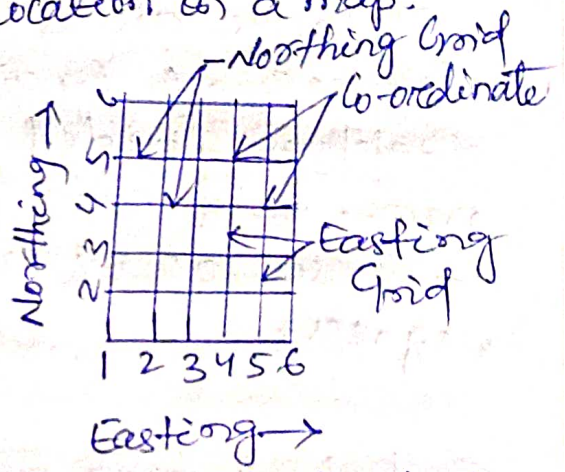 location on a map.
Northing Grid
Co-ordinate
6
5
4
3
2
Northing →
Easting
Grid
1 2 3 4 5 6
Easting →